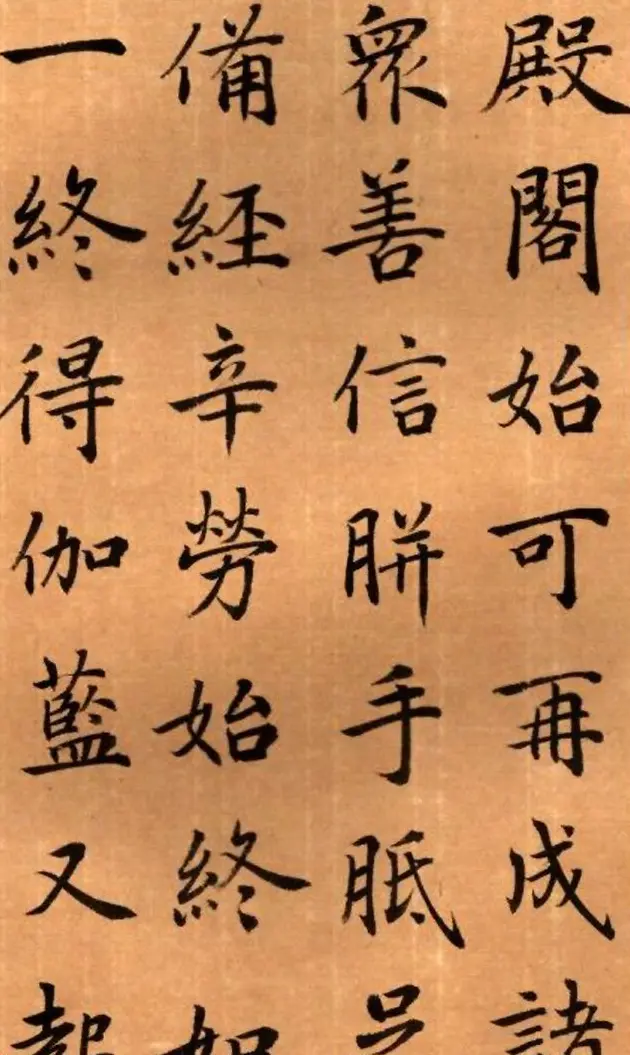 殿閣始可再成諸
眾善信胼手胝足
備經辛勞始終如
一終得伽藍又